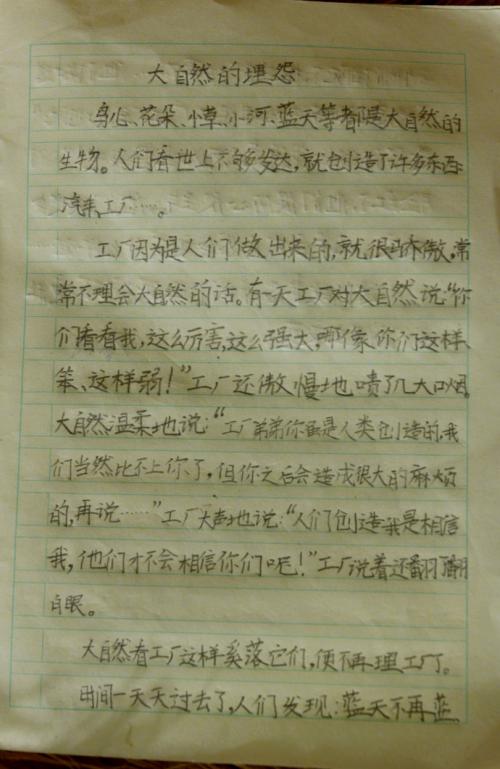 大自然的埋怨
鸟儿、花朵、小草、小河、蓝天等都是大自然的
生物。人们看世上不够发达,就创造了许多东西:
汽车、工厂……。
工厂因为是人们做出来的,就很骄傲,常
常不理会大自然的话。有一天工厂对大自然说:“你
们看看我,这么厉害,这么强大,哪像你们这样
笨、这样弱!”工厂还傲慢地喷了几大口烟。
大自然温柔地说:“工厂弟弟你虽是人类创造的,我
们当然比不上你了,但你之后会造成很大的麻烦
的,再说……”工厂大声地说:“人们创造我是相信
我,他们才不会相信你们呢!”工厂说着还翻了翻
白眼。
大自然看工厂这样奚落它们,便不再理工厂了。
时间一天天过去了,人们发现:蓝天不再蓝